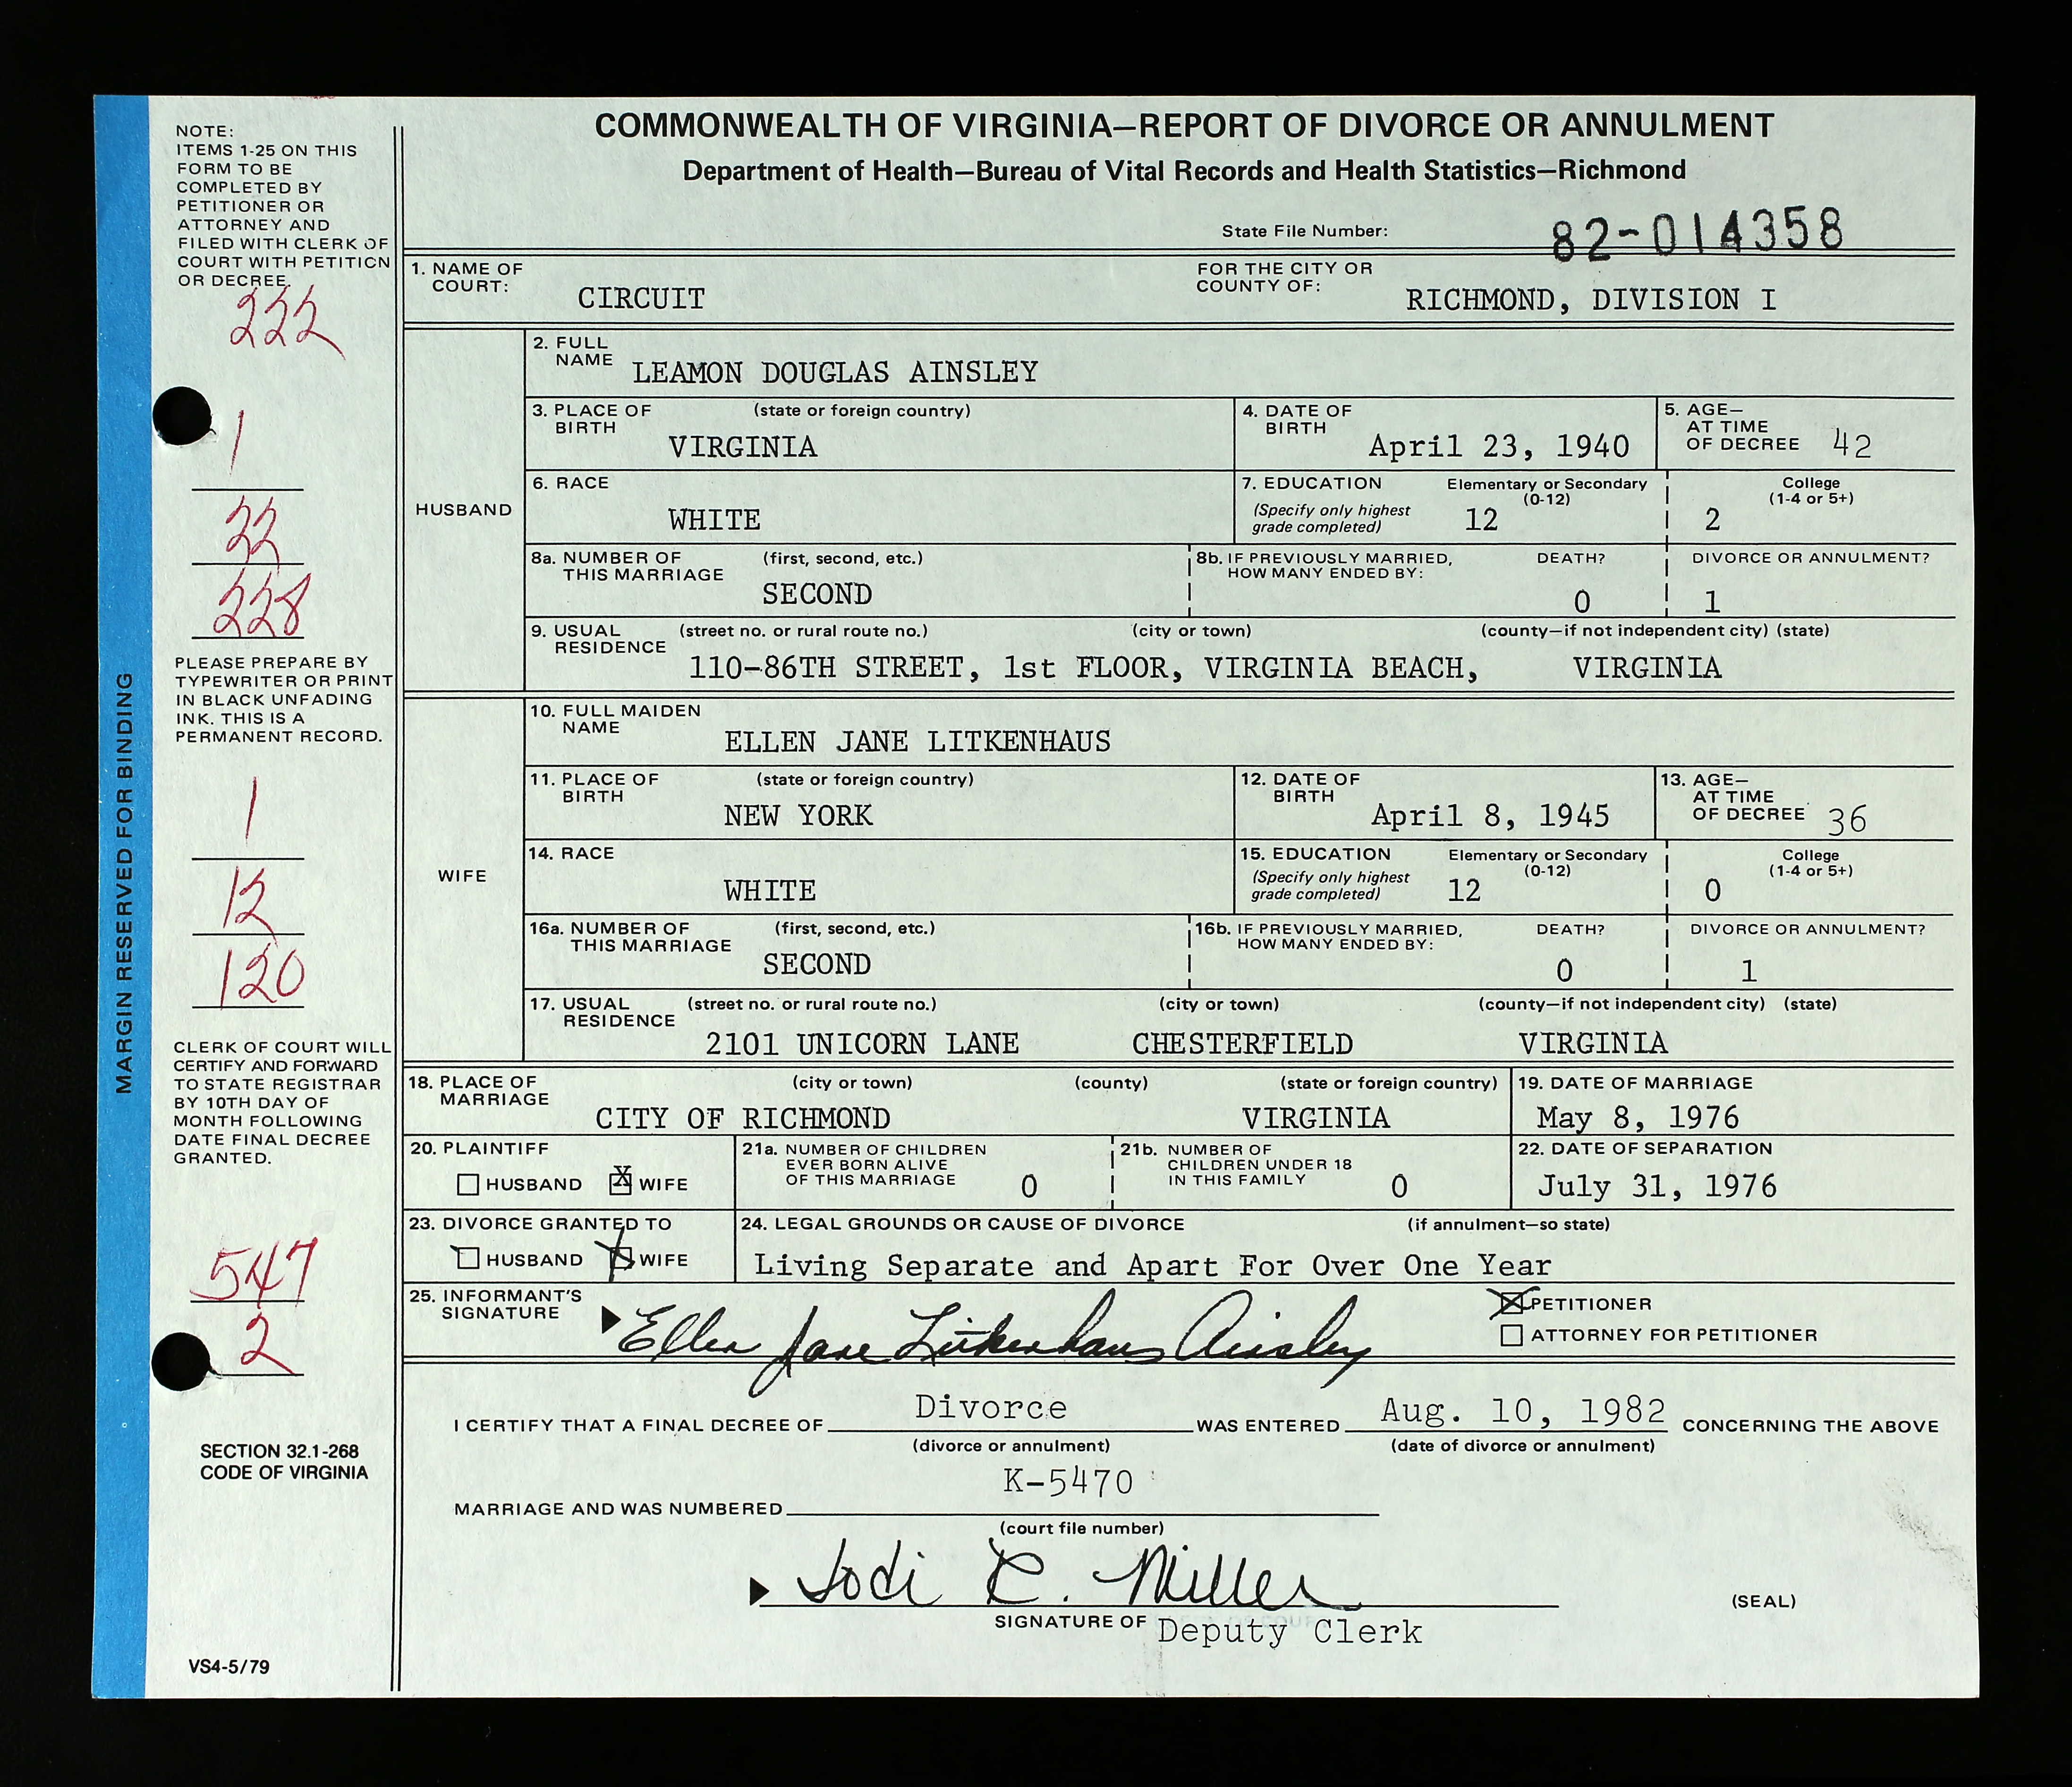 COMMONWEALTH OF VIRGINIA—REPORT OF DIVORCE OR ANNULMENT
Department of Health—Bureau of Vital Records and Health Statistics—Richmond
State File Number: 82-014358
MARGIN RESERVED FOR BINDING
NOTE:
ITEMS 1-25 ON THIS
FORM TO BE
COMPLETED BY
PETITIONER OR
ATTORNEY AND
FILED WITH CLERK OF
COURT WITH PETITION
OR DECREE.
222
1
22
228
PLEASE PREPARE BY
TYPEWRITER OR PRINT
IN BLACK UNFADING
INK. THIS IS A
PERMANENT RECORD.
1
12
120
CLERK OF COURT WILL
CERTIFY AND FORWARD
TO STATE REGISTRAR
BY 10TH DAY OF
MONTH FOLLOWING
DATE FINAL DECREE
GRANTED.
547
2
SECTION 32.1-268
CODE OF VIRGINIA
VS4-5/79
1. NAME OF COURT: CIRCUIT
FOR THE CITY OR COUNTY OF: RICHMOND, DIVISION I
HUSBAND
2. FULL NAME LEAMON DOUGLAS AINSLEY
3. PLACE OF BIRTH (state or foreign country) VIRGINIA
4. DATE OF BIRTH April 23, 1940
5. AGE— AT TIME OF DECREE 42
6. RACE WHITE
7. EDUCATION (Specify only highest grade completed) Elementary or Secondary (0-12) 12 College (1-4 or 5+) 2
8a. NUMBER OF THIS MARRIAGE (first, second, etc.) SECOND
8b. IF PREVIOUSLY MARRIED, HOW MANY ENDED BY: DEATH? 0 DIVORCE OR ANNULMENT? 1
9. USUAL RESIDENCE (street no. or rural route no.) (city or town) (county—if not independent city) (state)
110-86TH STREET, 1st FLOOR, VIRGINIA BEACH, VIRGINIA
WIFE
10. FULL MAIDEN NAME ELLEN JANE LITKENHAUS
11. PLACE OF BIRTH (state or foreign country) NEW YORK
12. DATE OF BIRTH April 8, 1945
13. AGE— AT TIME OF DECREE 36
14. RACE WHITE
15. EDUCATION (Specify only highest grade completed) Elementary or Secondary (0-12) 12 College (1-4 or 5+) 0
16a. NUMBER OF THIS MARRIAGE (first, second, etc.) SECOND
16b. IF PREVIOUSLY MARRIED, HOW MANY ENDED BY: DEATH? 0 DIVORCE OR ANNULMENT? 1
17. USUAL RESIDENCE (street no. or rural route no.) (city or town) (county—if not independent city) (state)
2101 UNICORN LANE CHESTERFIELD VIRGINIA
18. PLACE OF MARRIAGE (city or town) (county) (state or foreign country)
CITY OF RICHMOND VIRGINIA
19. DATE OF MARRIAGE May 8, 1976
20. PLAINTIFF HUSBAND X WIFE
21a. NUMBER OF CHILDREN EVER BORN ALIVE OF THIS MARRIAGE 0
21b. NUMBER OF CHILDREN UNDER 18 IN THIS FAMILY 0
22. DATE OF SEPARATION July 31, 1976
23. DIVORCE GRANTED TO HUSBAND X WIFE
24. LEGAL GROUNDS OR CAUSE OF DIVORCE (if annulment—so state)
Living Separate and Apart For Over One Year
25. INFORMANT'S SIGNATURE Ellen Jane Litkenhaus Ainsley
X PETITIONER
ATTORNEY FOR PETITIONER
I CERTIFY THAT A FINAL DECREE OF Divorce WAS ENTERED Aug. 10, 1982 CONCERNING THE ABOVE
(divorce or annulment) (date of divorce or annulment)
MARRIAGE AND WAS NUMBERED K-5470
(court file number)
Jodi R. Miller
SIGNATURE OF Deputy Clerk
(SEAL)